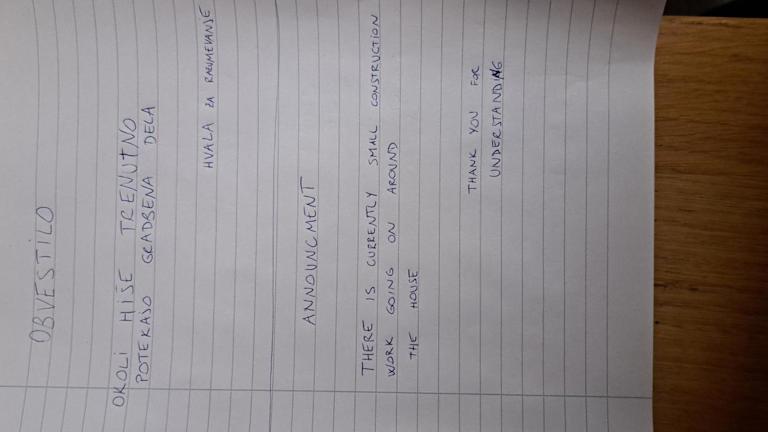 OBVESTILO
OKOLI HIŠE TRENUTNO
POTEKAJO GRADBENA DELA
HVALA ZA RAZUMEVANJE
ANNOUNCMENT
THERE IS CURRENTLY SMALL CONSTRUCTION
WORK GOING ON AROUND
THE HOUSE
THANK YOU FOR
UNDERSTANDING